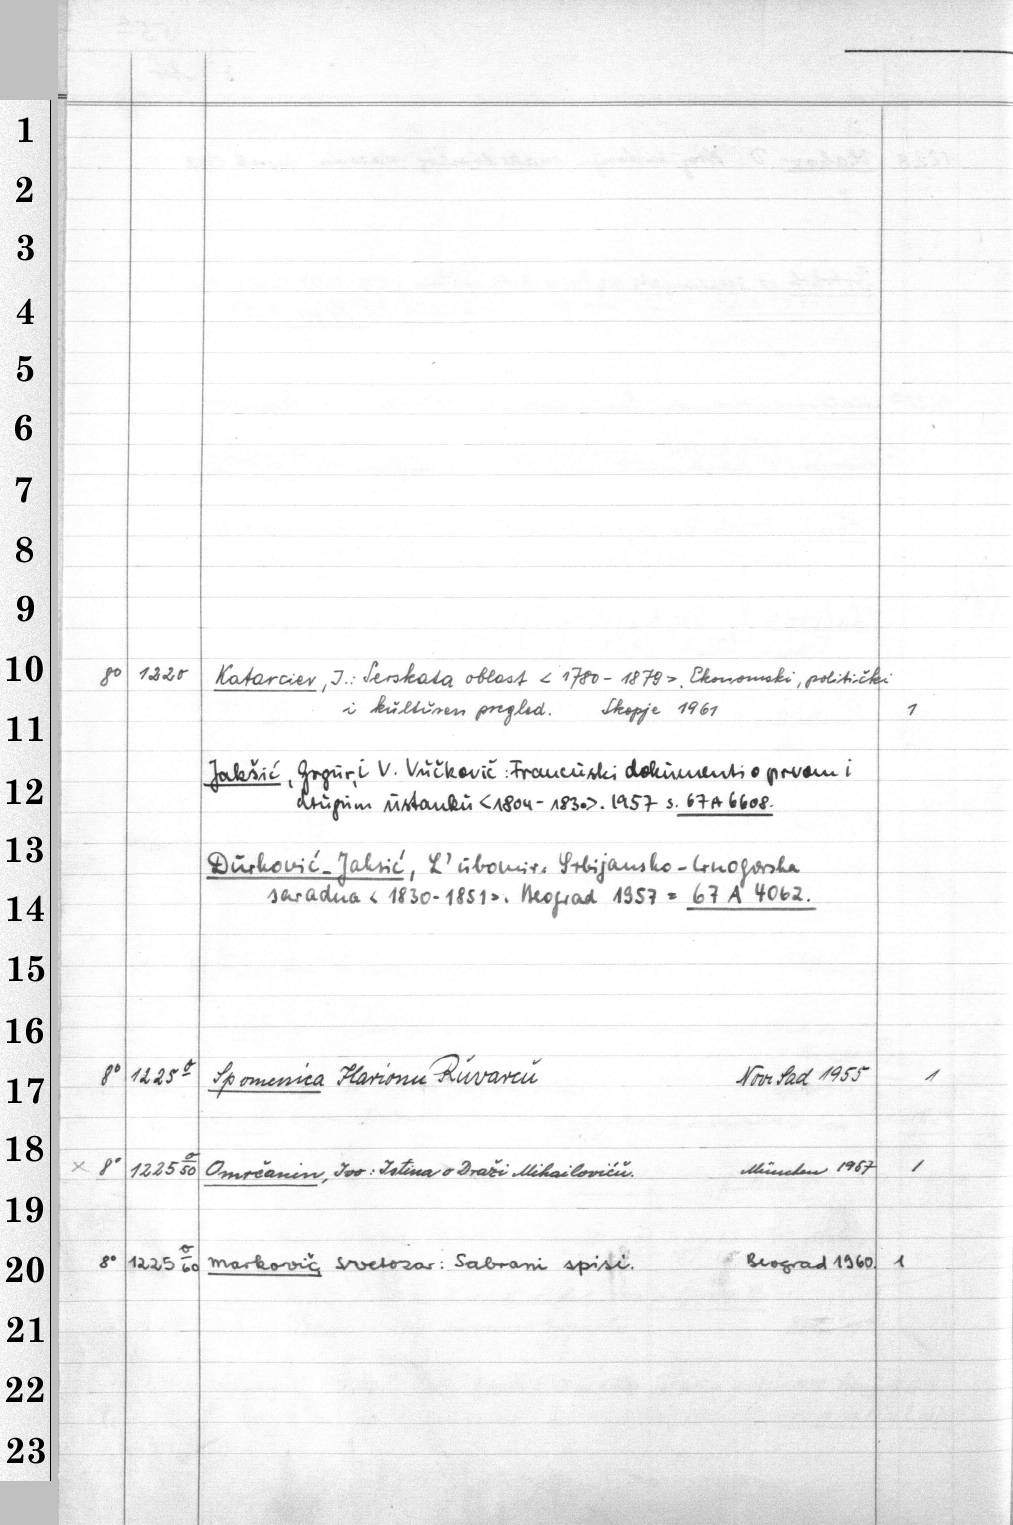 1
2
3
4
5
6
7
8
9
10
11
12
13
14
15
16
17
18
19
20
21
22
23
8° 1220 Katarciev, J.: Serskata oblast < 1780 - 1879 >. Ekonomski, politički
i kulturen pregled. Skopje 1961 1
Jakšić, Grgur, i V. Vučković: Francuski dokumenti o prvom i
drugom ustanku <1804 - 1830>. 1957 s. 67 A 6608.
Durković-Jakšić, L'ubomir: Srbijansko-Crnogorska
saradna < 1830 - 1851 >. Beograd 1957 = 67 A 4062.
8° 1225 σ Spomenica Ilarionu Ruvarcu Novi Sad 1955 1
x 8° 1225 σ/50 Omrčanin, Ivo: Istina o Draži Mihailoviću. München 1957 1
8° 1225 σ/60 Marković, Svetozar: Sabrani spisi. Beograd 1960. 1